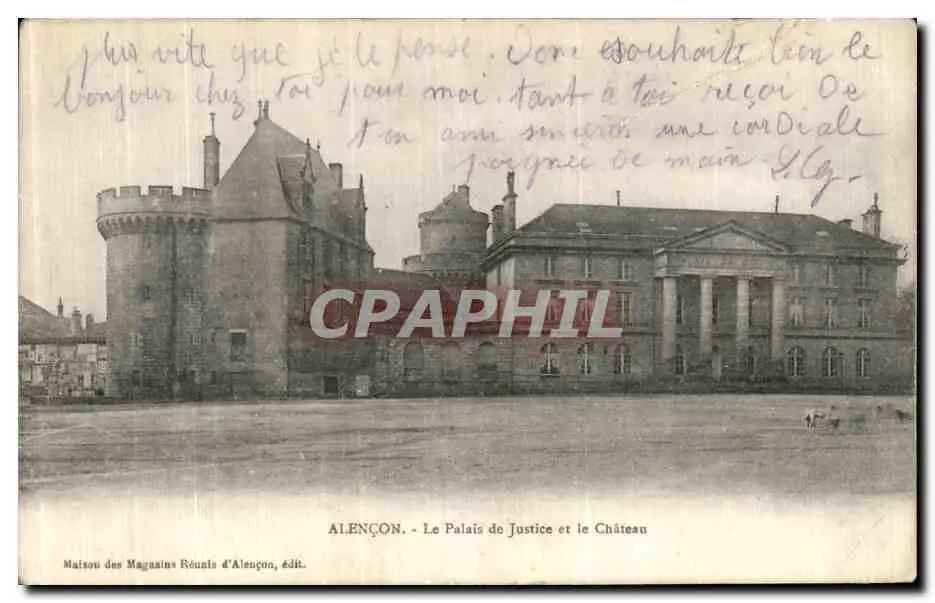 plus vite que je le pense. Donc souhaite bien le
bonjour chez toi pour moi. tant à toi reçoi de
ton ami sincères une cordiale
poignée de main
CPAPHIL
ALENÇON. - Le Palais de Justice et le Château
Maison des Magasins Réunis d'Alençon, édit.